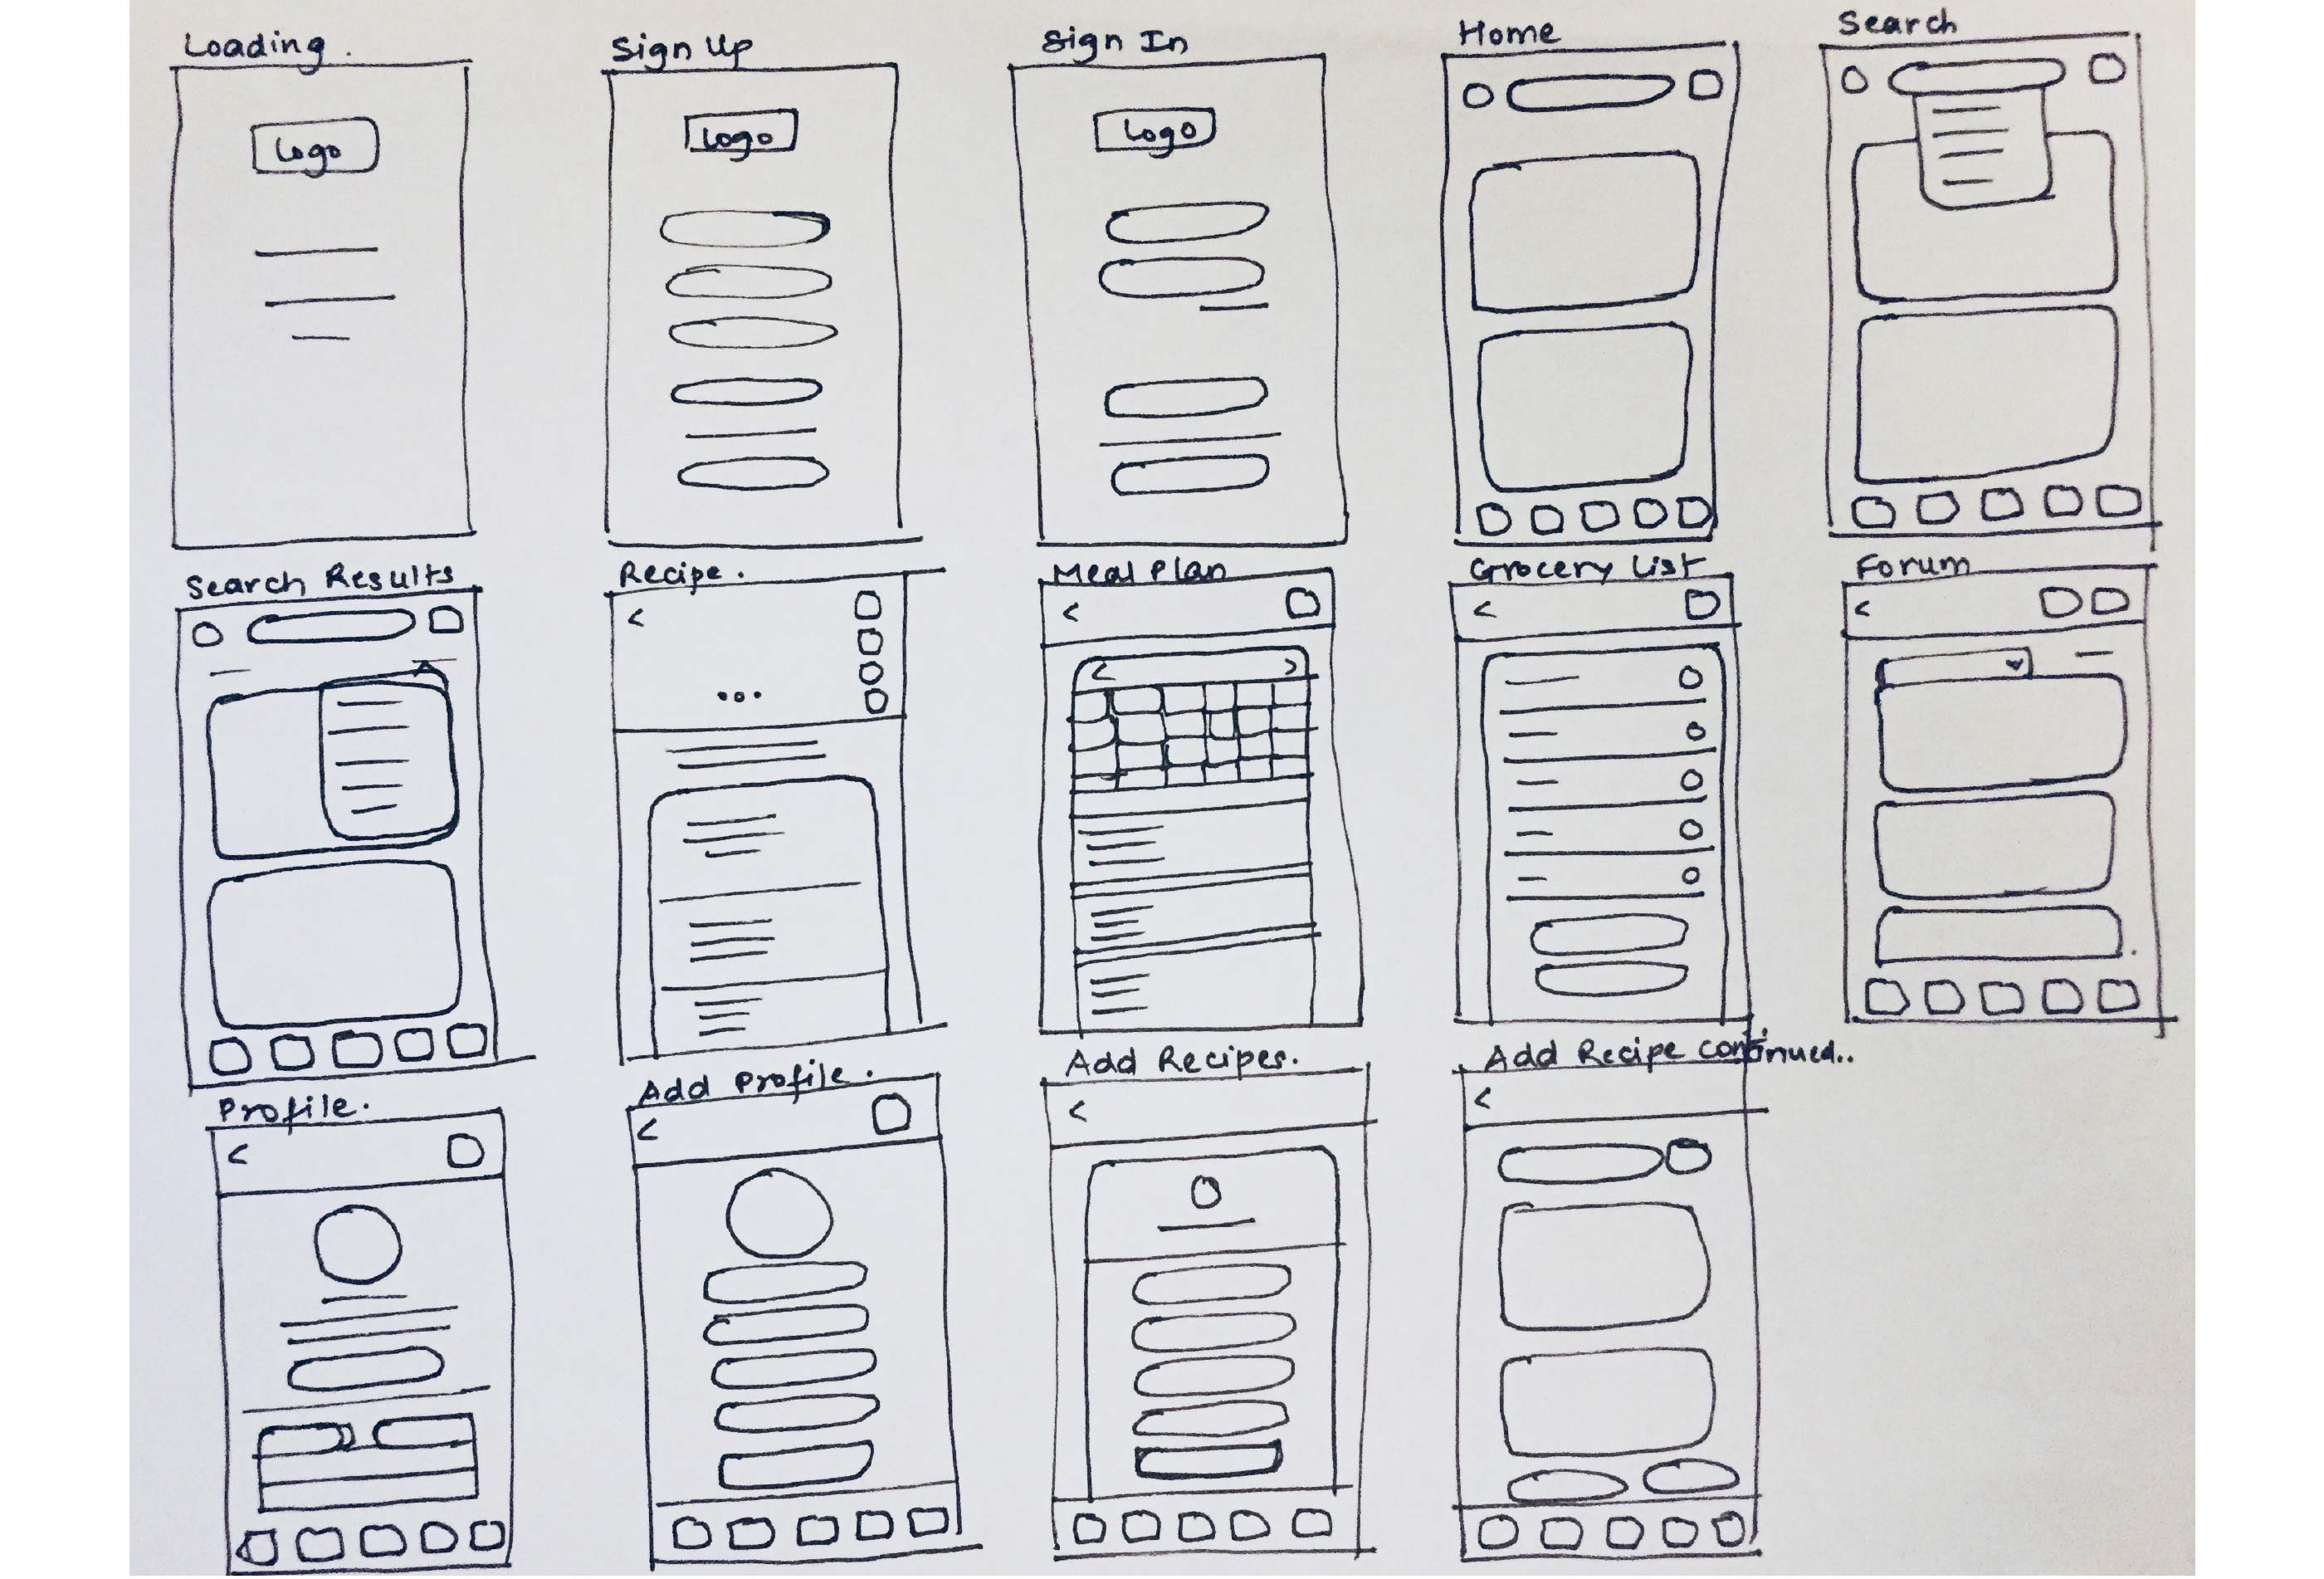 Loading.
Sign Up
Sign In
Home
Search
Logo
Logo
Logo
Search Results
Recipe.
Meal Plan
Grocery List
Forum
Profile.
Add Profile.
Add Recipes.
Add Recipe continued..